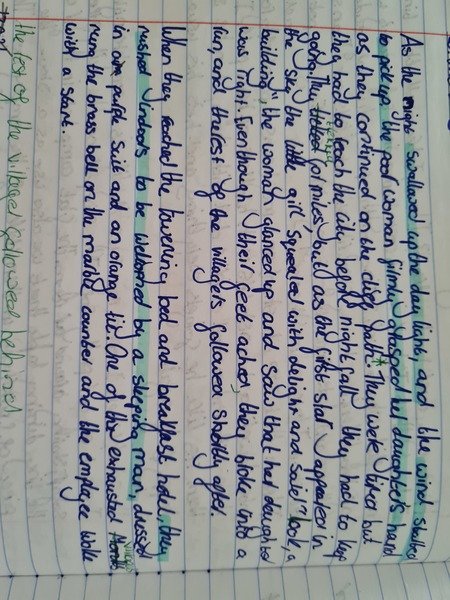 As the night swallowed up the day light, and the wind started
to pick up, the poor woman firmly grasped her daughter's hand
as they continued on the cliff path. They were tired but
they had to reach the city before night fall they had to keep
going. They hiking for miles, but as the first star appeared in
the sky, the little girl squealed with delight and said "look, a
building", the woman glanced up and saw that her daughter
was right. Even though their feet ached, they broke into a
run, and the rest of the villagers followed shortly after.
When they reached the towering bed and breakfast hotel, they
rushed indoors to be welcomed by a sleeping man, dressed
in a purple suit and an orange tie. One of the exhausted
rung the brass bell on the marble counter and the employee woke
with a start.
the rest of the villager followed behind